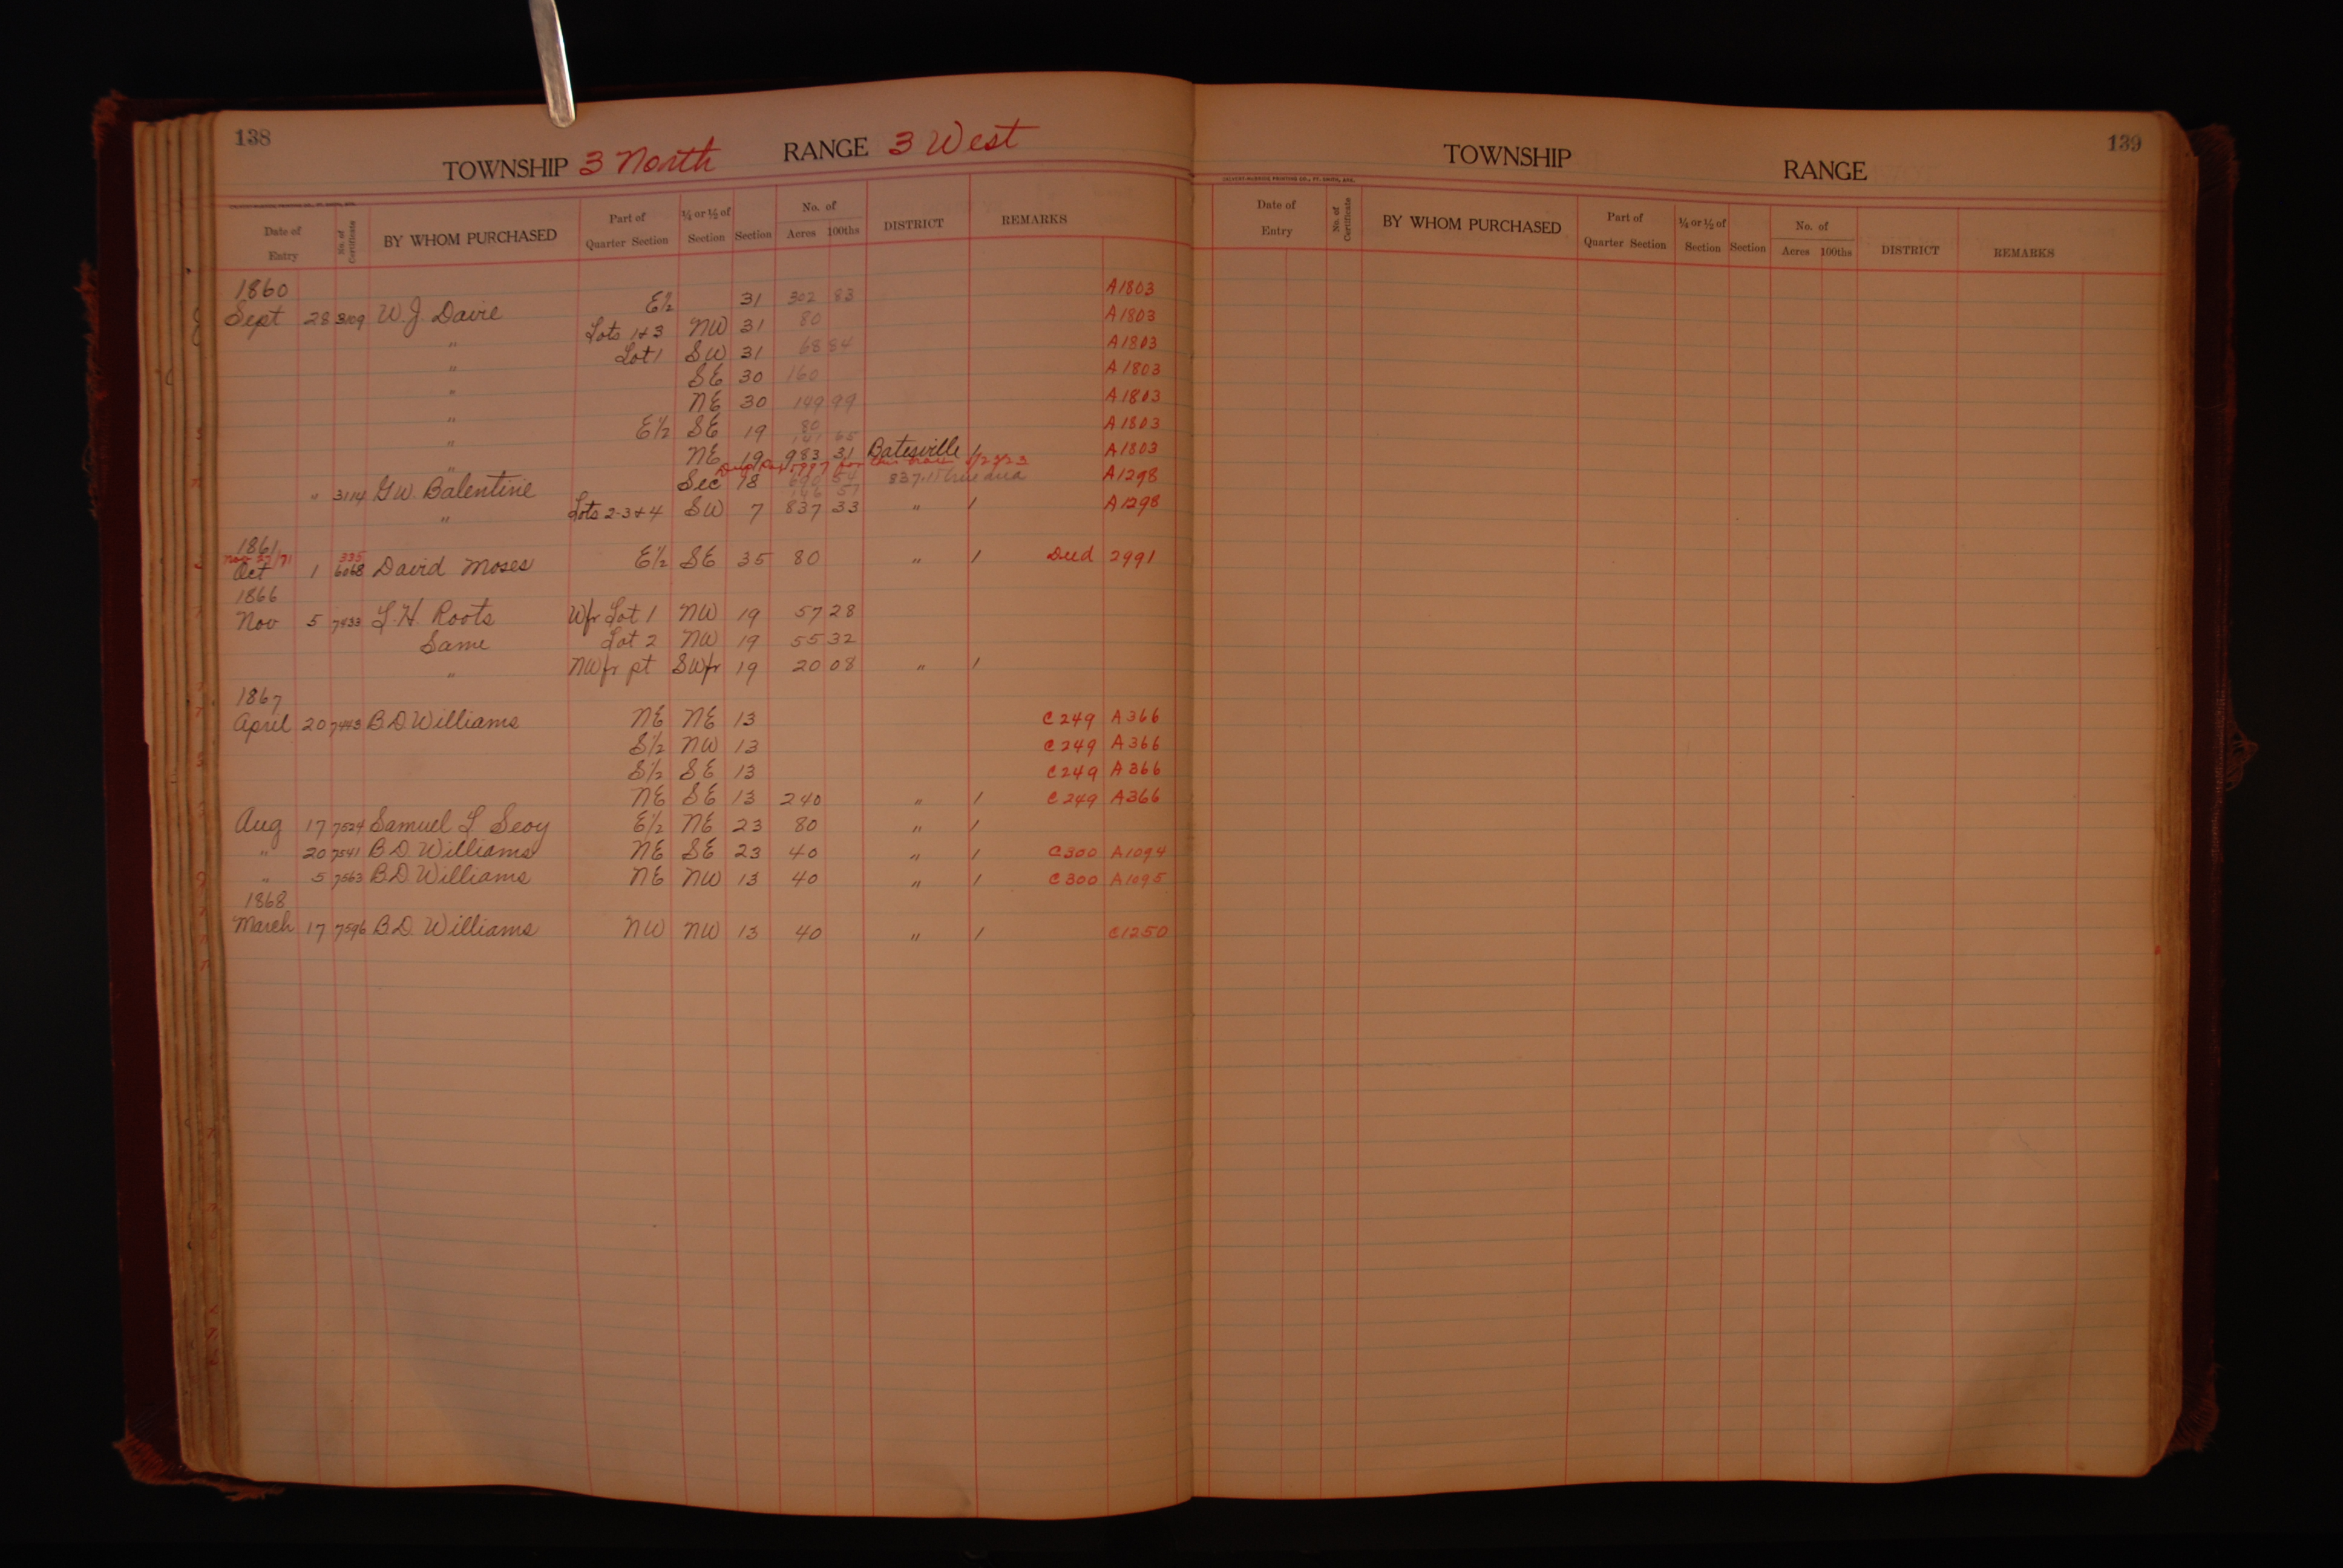 138
TOWNSHIP 3 North RANGE 3 West
Date of Entry No. of Certificate BY WHOM PURCHASED Part of Quarter Section ¼ or ½ of Section Section No. of Acres 100ths DISTRICT REMARKS
1860
Sept 28 3109 W. J. Davie E½ 31 302 83 A1803
" Lots 1&3 NW 31 80 A1803
" Lot 1 SW 31 68 84 A1803
" SE 30 160 A1803
" NE 30 149 99 A1803
" E½ SE 19 80 A1803
" NE 19 983 31 Batesville / A1803
" 3114 G.W. Balentine Sec 18 690 54 A1298
" Lots 2-3&4 SW 7 837 33 " / A1298
1861
Nov 27/71 335
Oct 1 6068 David Moses E½ SE 35 80 " / Dud 2991
1866
Nov 5 7433 L. H. Roots Wfr Lot 1 NW 19 57 28
Same Lot 2 NW 19 55 32
" NWfr pt SWfr 19 20 08 " /
1867
April 20 7443 B D Williams NE NE 13 C249 A366
S½ NW 13 C249 A366
S½ SE 13 C249 A366
NE SE 13 240 " / C249 A366
Aug 17 7524 Samuel L Seoy E½ NE 23 80 " /
" 20 7541 B D. Williams NE SE 23 40 " / C300 A1094
" 5 7563 B.D. Williams NE NW 13 40 " / C300 A1095
1868
March 17 7596 B.D. Williams NW NW 13 40 " / C1250
139
TOWNSHIP RANGE
CALVERT-McBRIDE PRINTING CO., FT. SMITH, ARK.
Date of Entry No. of Certificate BY WHOM PURCHASED Part of Quarter Section ¼ or ½ of Section Section No. of Acres 100ths DISTRICT REMARKS